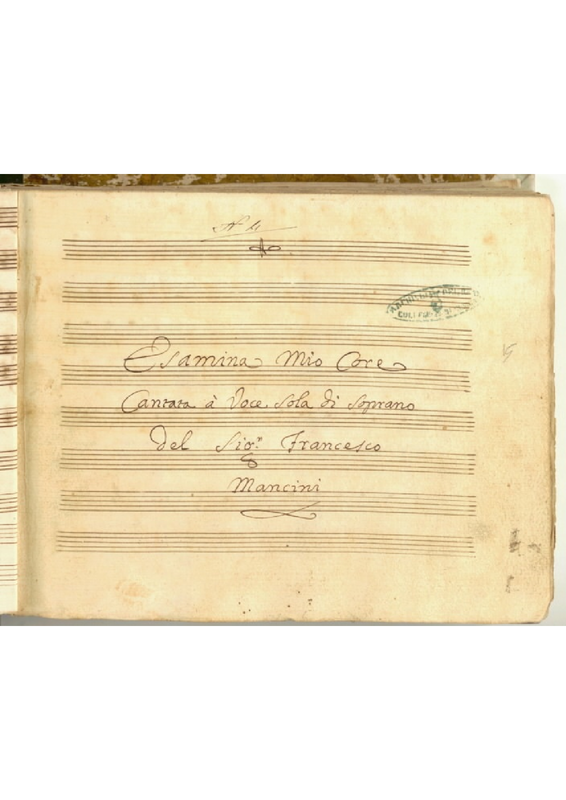 Esamina Mio Core
Cantata à Voce sola di Soprano
del Sig.r Francesco
Mancini